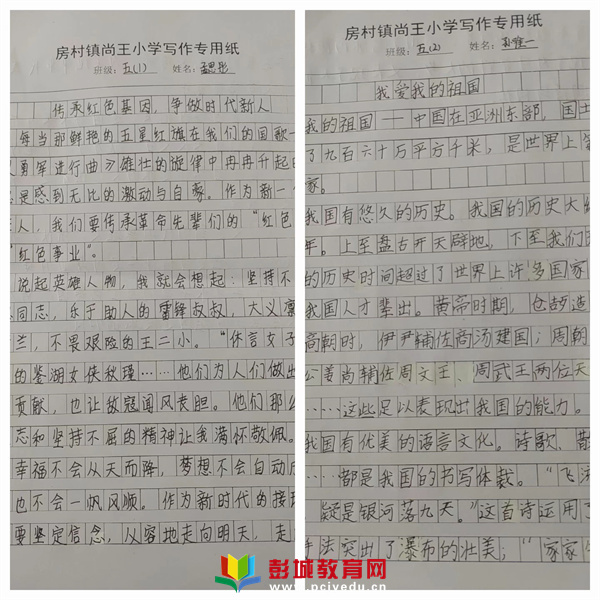 房村镇尚王小学写作专用纸
班级：五(1) 姓名：孟思彤
传承红色基因，争做时代新人
每当那鲜艳的五星红旗在我们的国歌
勇军进行曲》雄壮的旋律中冉冉升起
是感到无比的激动与自豪。作为新一
人，我们要传承革命先辈们的“红色
“红色事业”。
说起英雄人物，我就会想起：坚持不
同志，乐于助人的雷锋叔叔，大义凛
兰，不畏艰险的王二小。“休言女子
的鉴湖女侠秋瑾……他们为人们做出
贡献，也让敌寇闻风丧胆。他们那么
志和坚持不屈的精神让我满怀敬佩。
幸福不会从天而降，梦想不会自动
也不会一帆风顺。作为新时代的接
要坚定信念，从容地走向明天，走
房村镇尚王小学写作专用纸
班级：五(2) 姓名：唯一
我爱我的祖国
我的祖国——中国在亚洲东部，国土
了九百六十万平方千米，是世界上
家。
我国有悠久的历史。我国的历史大
年。上至盘古开天辟地，下至我们
的历史时间超过了世界上许多国家
我国人才辈出。黄帝时期，仓颉造
商朝时，伊尹辅佐商汤建国；周朝
公姜尚辅佐周文王、周武王两位天
……这些足以表现出我国的能力。
我国有优美的语言文化。诗歌、
……都是我国的书写体裁。“飞流
疑是银河落九天。”这首诗运用了
手法突出了瀑布的壮美；“家家
彭城教育网
www.pcivedu.com